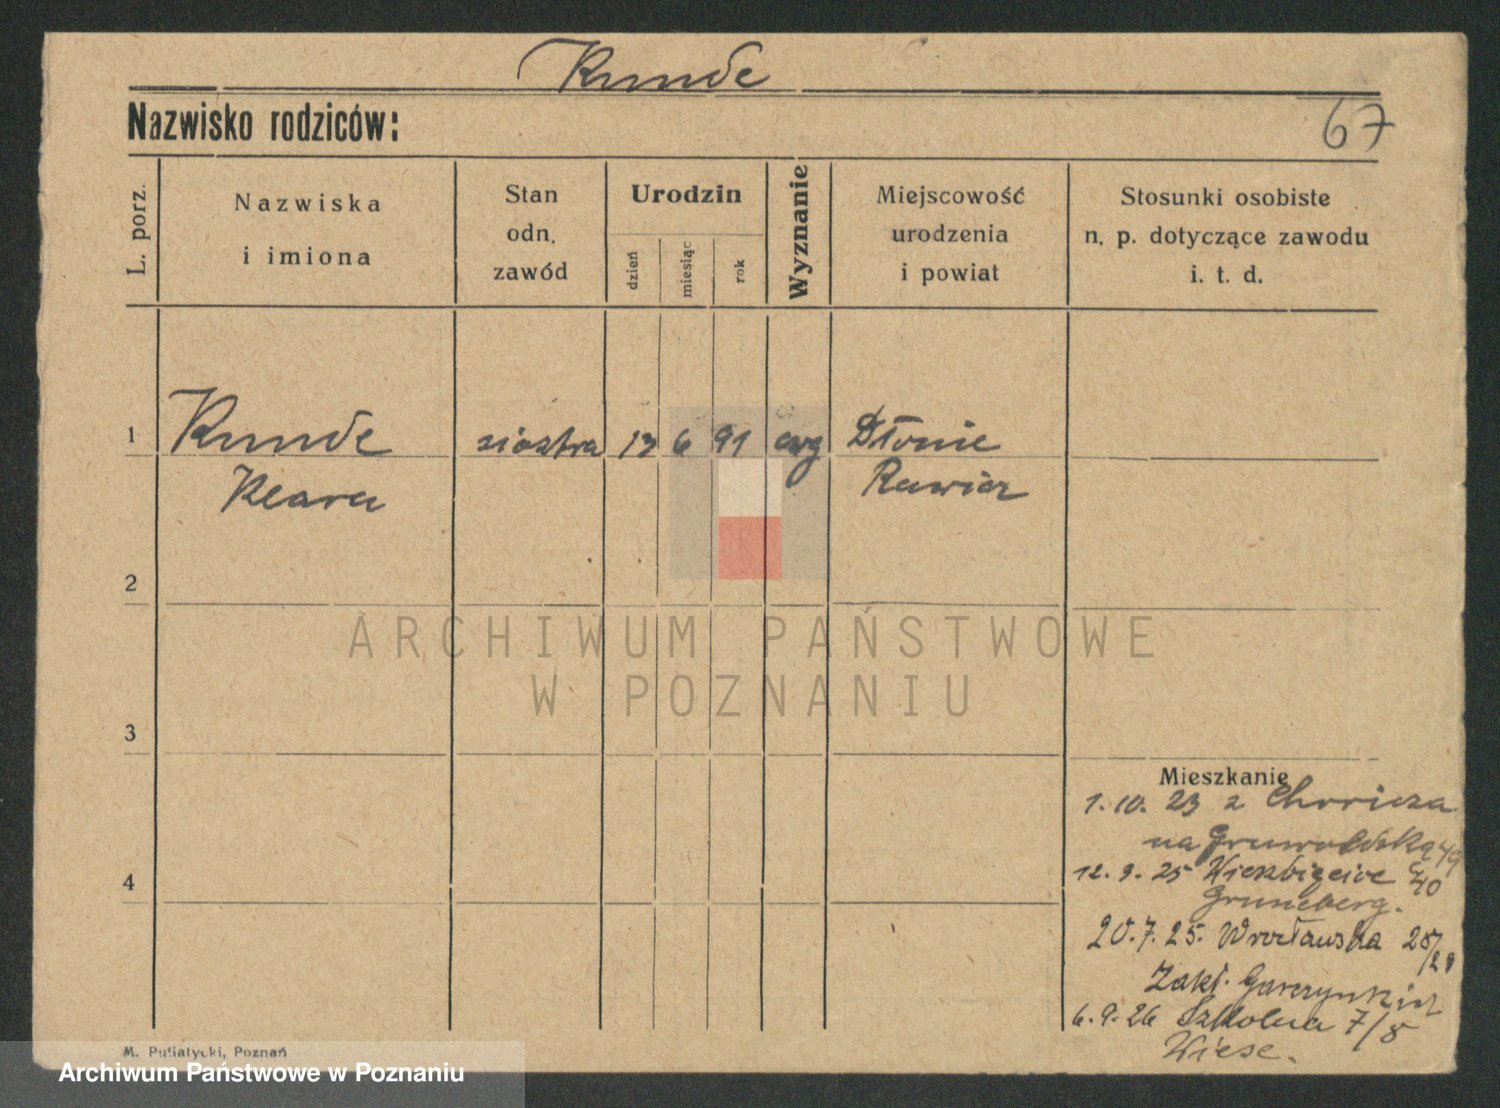 Kunde
Nazwisko rodziców:
67
L. porz.
Nazwiska
i imiona
Stan
odn.
zawód
Urodzin
dzień
miesiąc
rok
Wyznanie
Miejscowość
urodzenia
i powiat
Stosunki osobiste
n. p. dotyczące zawodu
i. t. d.
1 Kunde siostra 13 6 91 ewg Dłonie
Klara Rawicz
2
ARCHIWUM PAŃSTWOWE
W POZNANIU
3
Mieszkanie
1. 10. 23 z
na Grunwaldzką 49
4
12. 9. 25 40
Gruneberg.
20. 7. 25. Wrocławska
Zakł.
6. 9. 26 Szkolna 7/8
Wiese.
M. Putiatycki, Poznań
Archiwum Państwowe w Poznaniu